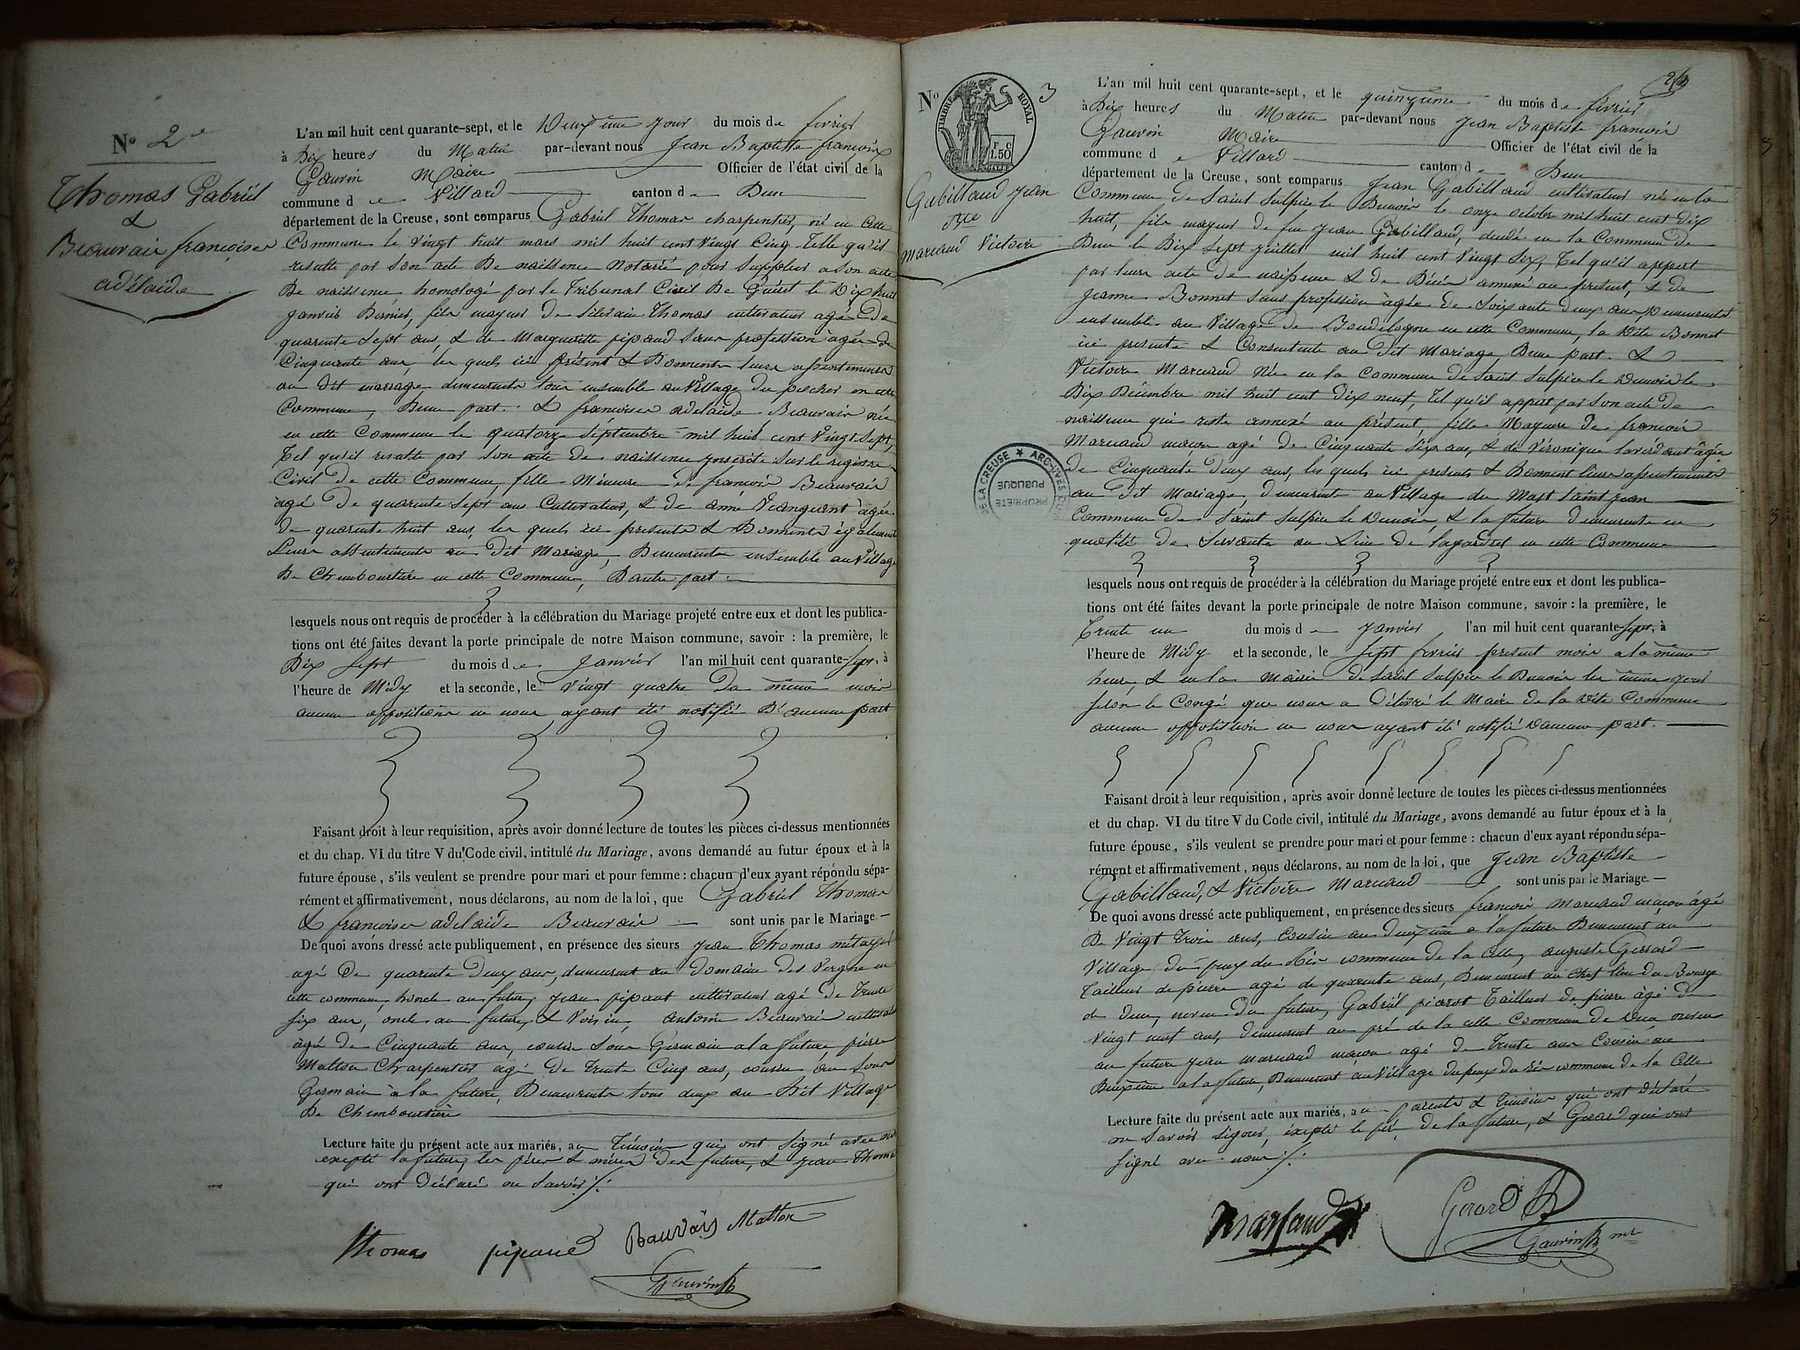 N° 2e
Thomas Gabriel
&
Beauvais françoise
adélaïde
L'an mil huit cent quarante-sept, et le Deuxieme jour du mois de fevrier
à Dix heures du Matin par-devant nous Jean Baptiste françois
Gauvin Maire Officier de l'état civil de la
commune de Villard canton de Dun
département de la Creuse, sont comparus Gabriel Thomas charpentier, né en cette
Commune le vingt huit mars mil huit cent vingt cinq Telle qu'il
resulte par son acte De naissance Notarié pour suppleer a son acte
De naissence homologé par le Tribunal Civil De Guéret le Dix huit
janvier Dernier, fils mageur de Silvain Thomas cultivateur agé De
quarente sept ans, & de Marguerite pipaud sans profession agée de
Cinquante ans, les quels ici présent & Donnents leurs assentiments
au dit mariage demeurants tous ensemble au Village du pescher en cette
Commune, Dune part. & françoise adelaide Beauvais née
en cette Commune le quatorze septembre mil huit cent vingt sept,
Tel qu'il resulte par son acte de naissence inscrite sur le registre
Civil de cette Commune, fille Mineure de françois Beauvais
agé De quarente sept ans Cultivateur, & de anne agée
de quarente huit ans, les quels ici presents & Donnents également
Leurs assentiments au Dit Mariage, Demeurents ensemble au Village
De Chemboursière en cette Commune, Dautre part.
lesquels nous ont requis de procéder à la célébration du Mariage projeté entre eux et dont les publica-
tions ont été faites devant la porte principale de notre Maison commune, savoir : la première, le
Dix sept du mois de Janvier l'an mil huit cent quarante-sept, à
l'heure de Midy et la seconde, le vingt quatre Du même mois
aucune opposition ne nous ayant été notifié D'aucune part
Faisant droit à leur requisition, après avoir donné lecture de toutes les pièces ci-dessus mentionnées
et du chap. VI du titre V du Code civil, intitulé du Mariage, avons demandé au futur époux et à la
future épouse, s'ils veulent se prendre pour mari et pour femme : chacun d'eux ayant répondu sépa-
rément et affirmativement, nous déclarons, au nom de la loi, que Gabriel Thomas
& françoise adelaide Beauvais sont unis par le Mariage.—
De quoi avons dressé acte publiquement, en présence des sieurs jean Thomas métayer
agé De quarente Deux ans, demeurant au Domaine des Vergne en
cette commune, au futur, jean pipaud cultivateur agé De trente
six ans, oncle au futur, & Voisin, antoine Beauvais cultivateur
agé de Cinquante ans, cousin sous Germain a la future, pierre
Matton Charpentier agé De trente Cinq ans, cousin au sous
Germain à la future, Demeurents tous deux au Dit Village
De Chemboursière
Lecture faite du présent acte aux mariés, au Témoins qui ont signé avec nous
excepté la future, les pères & mères des futurs, & jean Thomas
qui ont déclaré ne savoir ./.
Thomas pipaud Bauvais Matton
Gauvin
N° 3
TIMBRE ROYAL
F. C.
1.50
Gabillaud jean
Bte
marcaud Victoire
L'an mil huit cent quarante-sept, et le quinzieme du mois de fevrier
à Dix heures du Matin par-devant nous Jean Baptiste francois
Gauvin Maire Officier de l'état civil de la
commune de Villard canton de Dun
département de la Creuse, sont comparus Jean Gabillaud cultivateur né en la
Commune de Saint Sulpice le Dunois le onze octobre mil huit cent dix
huit, fils mageur de feu jean Gabillaud, décédé en la Commune de
Dun le Dix sept juillet mil huit cent vingt six, Tel qu'il appert
par leurs acte de naissence & de Décés annexé au present, & de
jeanne Bonnet sans profession agée de soixante deux ans Demeurents
ensemble au Village de en cette Commune, la Dite Bonnet
ici presente & Consentente au Dit Mariage Dune part. &
Victoire Marcaud Née en la Commune de Saint Sulpice le Dunois le
Dix Décembre mil huit cent Dix neuf, Tel qu'il appert par son acte de
naissence qui reste annexé au présent, fille Mageure De francois
Marcaud maçon agé de Cinquante six ans, & de Véronique agée
De Cinquante Deux ans, les quels ici presents & Donnent leurs assentiments
au Dit Mariage, Demeurents au Village du Mast Saint jean
Commune de Saint Sulpice le Dunois, & la future Demeurente en
qualité de Servente au Lieu de en cette Commune
DE LA CREUSE ★ ARCHIVES
PROPRIÉTÉ
PUBLIQUE
lesquels nous ont requis de procéder à la célébration du Mariage projeté entre eux et dont les publica-
tions ont été faites devant la porte principale de notre Maison commune, savoir : la première, le
Trente un du mois de janvier l'an mil huit cent quarante-sept, à
l'heure de Midy et la seconde, le sept fevrier present mois a la meme
heure, & en la Mairie de Saint Sulpice le Dunois les memes jours
selon le Congé que nous a Délivré le Maire de la Dite Commune
aucune opposition ne nous ayant été notifié Daucune part.
Faisant droit à leur requisition, après avoir donné lecture de toutes les pièces ci-dessus mentionnées
et du chap. VI du titre V du Code civil, intitulé du Mariage, avons demandé au futur époux et à la
future épouse, s'ils veulent se prendre pour mari et pour femme : chacun d'eux ayant répondu sépa-
rément et affirmativement, nous déclarons, au nom de la loi, que Jean Baptiste
Gabillaud, & Victoire Marcaud sont unis par le Mariage.—
De quoi avons dressé acte publiquement, en présence des sieurs francois Marcaud maçon âgé
De Vingt trois ans, Cousin au deuxieme a la future Demeurent au
Village du commune de la Celle, auguste Gerard
Tailleur de pierre agé de quarente ans, Demeurent au chef lieu du Bourg
de Dun, Du futur, Gabriel Tailleur de pierre âgé de
Vingt neuf ans, demeurent au pré de la celle Commune de Dun cousin
au futur jean marcaud maçon agé de trente ans Cousin au
Deuxieme a la future, Demeurent au Village du commune de la Celle
Lecture faite du présent acte aux mariés, au parents & Témoins qui ont déclaré
ne savoir signer, excepté le père de la future, & Gerard qui ont
signé avec nous ./.
Marsaud Gerard
Gauvin mre